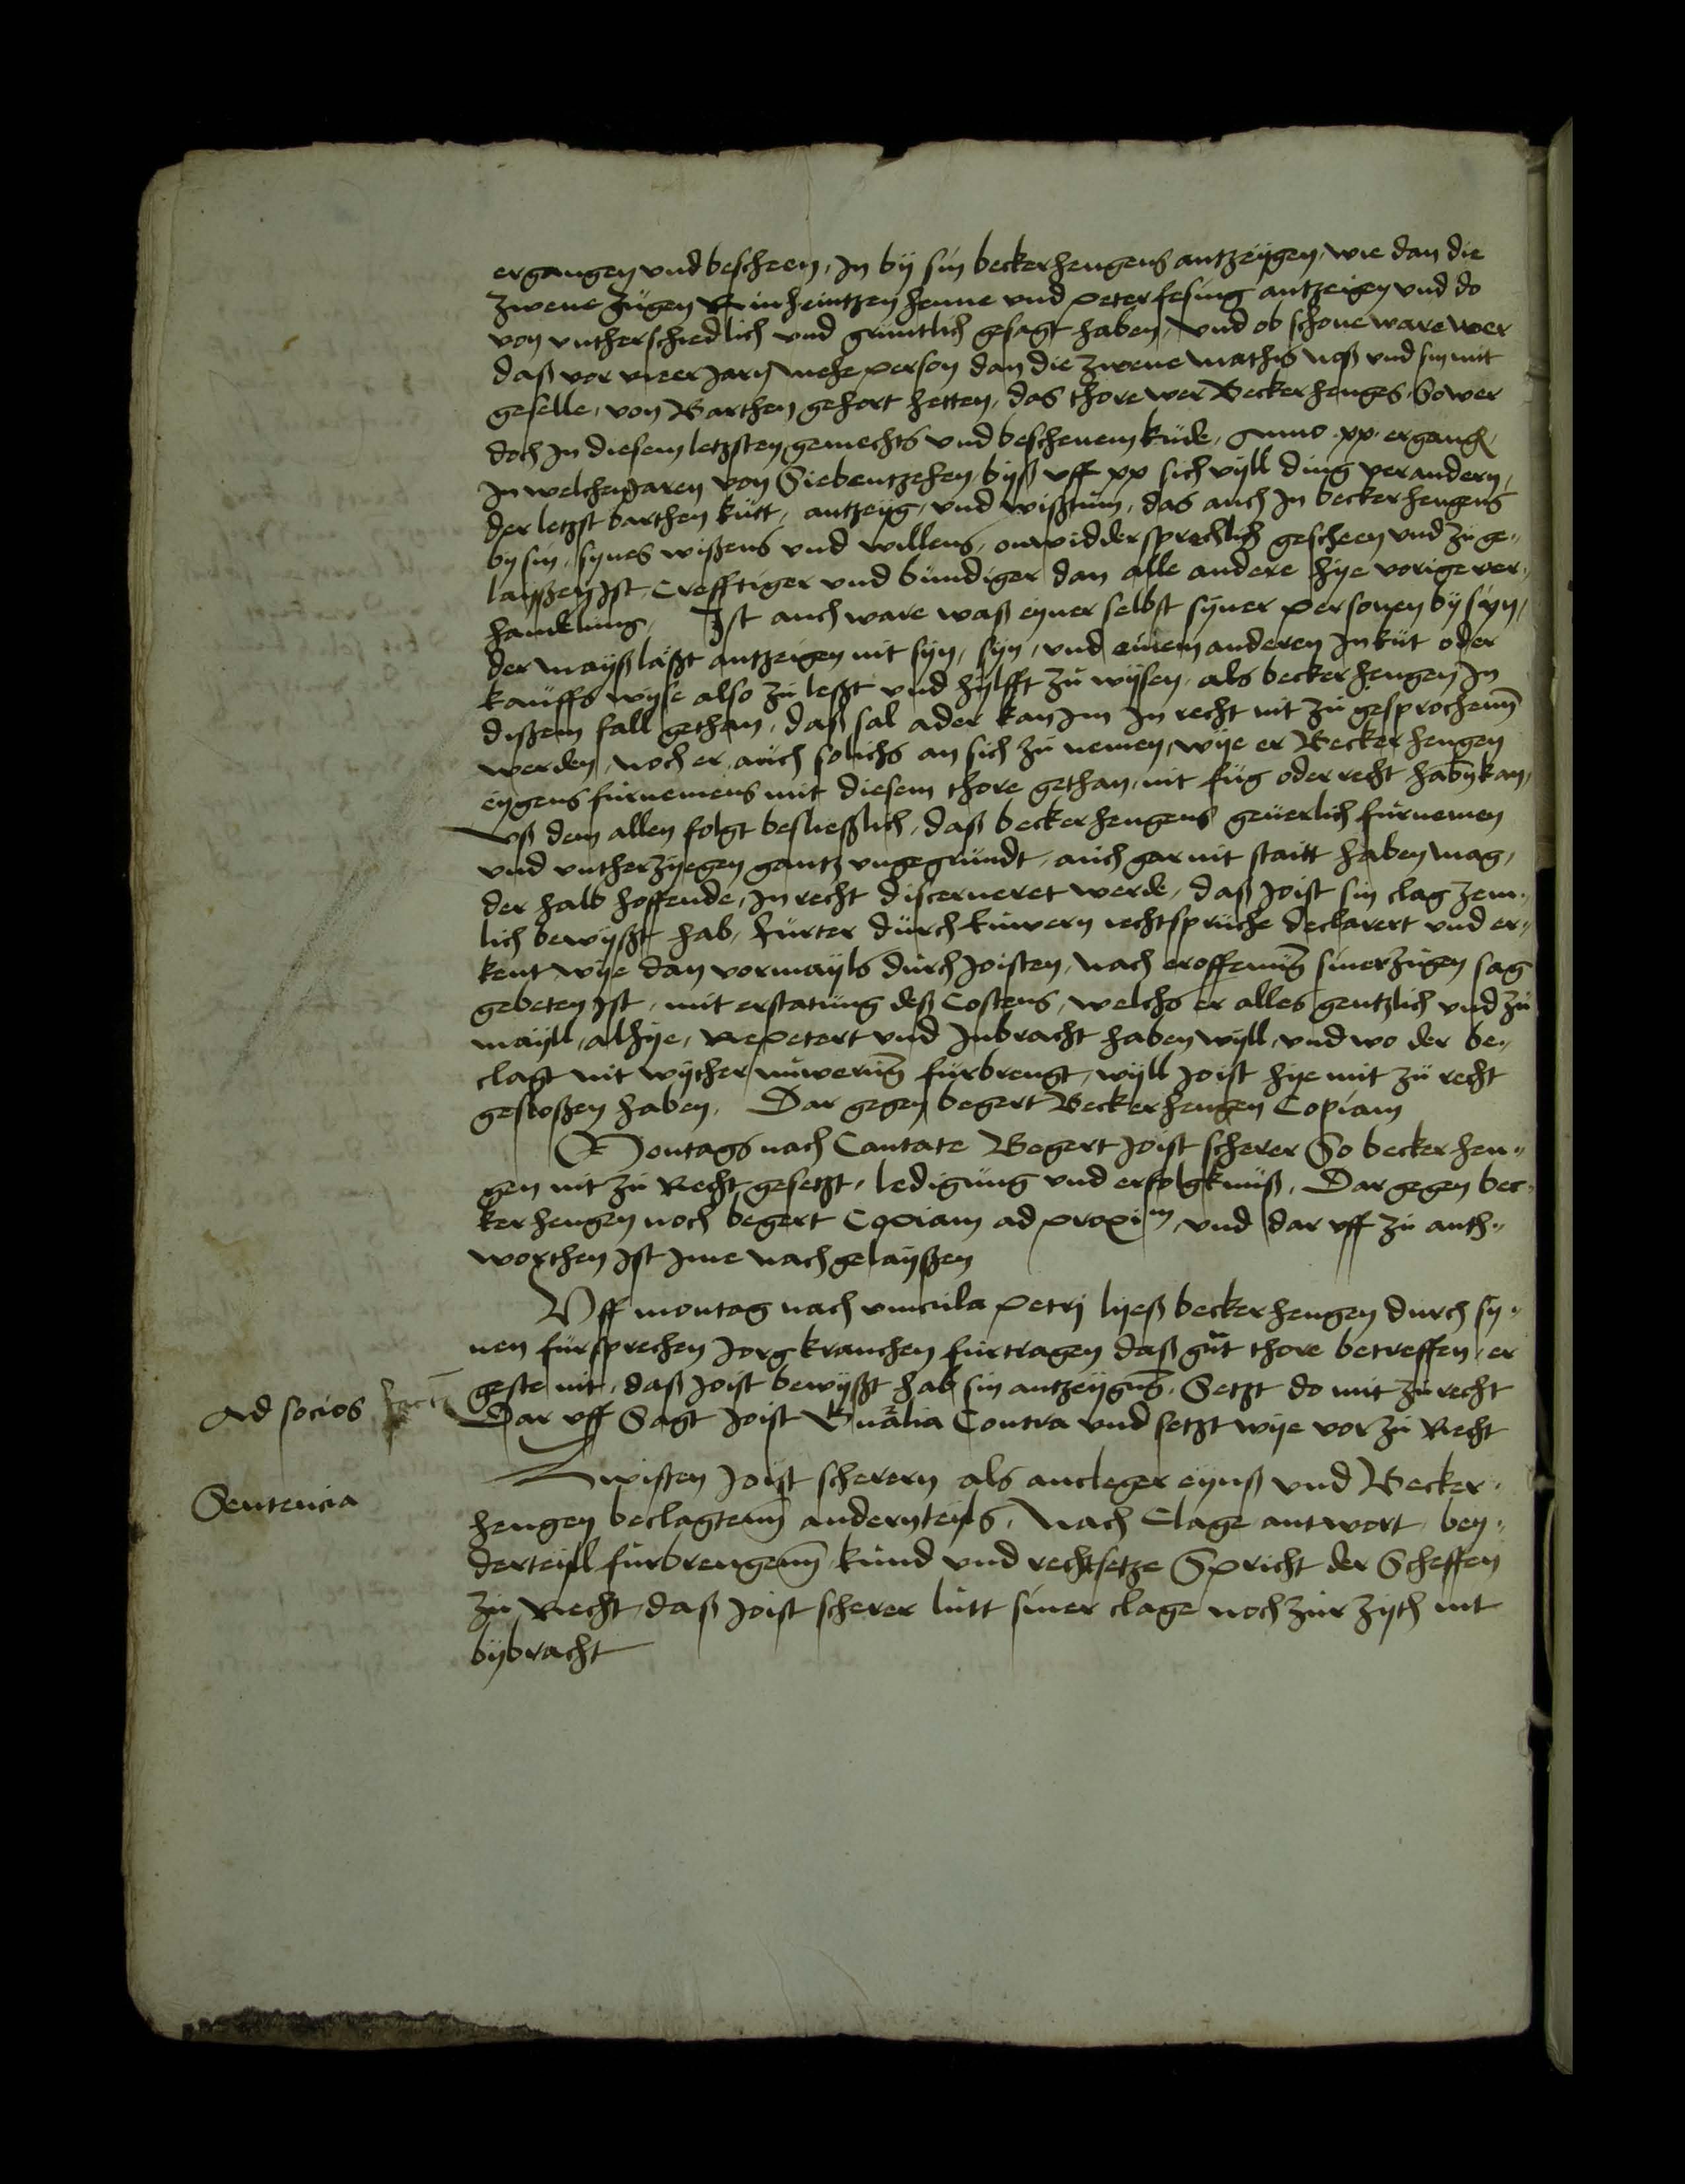 ergangen und bescheen, In by sin beckerhengens antzeygen, wie dan die
zwene zugen Rinheintzen henne und peter fesing antzeigen und do
von untherschiedlich und gruntlich gesagt haben, und ob schone ware wer
daß vor vieer Jarn mehe person dan die zwene mathis und sin mit
geselle, von Barthen gehort hetten, das thore wer Becker henges, So wer
doch In diesem letzsten gemechts und beschenem kude, Anno .xx. ergang
In welchen Jaren von Siebentzehen, byß uff xx sich vyll ding verandern,
der letzst barthen kutt, antzeyg, und wißtum, das auch In becker hengens
by sin, synes wißens und willens, onwiddersprechlich gescheen und zu ge„
layßen Ist, Crefftiger und bundiger dan alle andere hye vorige ver„
handlung, Ist auch ware waß eyner selbst syner personen by syn,
der mayß laßt antzeigen nit syn, syn, und einem anderen In kut oder
kauffs wyse also zu leßt und hylfft zu wysen, als becker hengen In
dißem fall gethan, daß sal ader kan Im In recht nit zu gesprochenn
werden, noch er auch solichs an sich zu nemen, wye er Becker hengen
eygens furnemens mit diesem thore gethan, nit fug oder recht habn kan,
Uß dem allen folgt besließlich, daß becker hengens geverlich furnemen
und untherzyegen gantz ungegrundt, auch gar nit staitt haben mag,
der halb hoffende, In recht discerneret werde, daß Joist sin clag zem„
lich bewyßt hab, furter durch Euwern rechtspruche declarert und er„
kent wye dan vormayls durch Joisten, nach eroffenung siner zugen sag
gebeten Ist, mit erstatung deß Costens, welchs er alles gentzlich und zu
mayll, alhye, Repetert und Inbracht haben wyll, und wo der be„
clagt nit wyther nuwerung furbrengt, wyll Joist hye mit zu recht
gesloßen haben, Dar gegen begert Becker hengen Copiam
Montags nach Cantate Begert Joist scherer So becker hen„
gen nit zu Recht gesetzt, ledigung und erfolgknuß, Dar gegen bec„
ker hengen noch begert Copiam ad proxim, und dar uff zu anth„
worthen Ist Ime nachgelayßen
Uff montag nach vincula petrj lyeß becker hengen durch sy„
nen fursprechen Jorg kranchen furtragen daß gut thore betreffen, er
geste nit, daß Joist bewyßt hab sin antzeygung, Setzt do mit zu recht
Ad socios
Dar uff Sagt Joist Gnalia Contra und setzt wye vor zu Recht
Zwisten Joist scherern als ancleger eynß und Becker„
Sentencia
hengen beclagtenn anderteyls, Nach Clage antwort, bey„
derteyll furbrengenn kund und rechtsetze Spricht der Scheffen
zu Recht, daß Joist scherer lutt siner clage noch zur zyth nit
bybracht